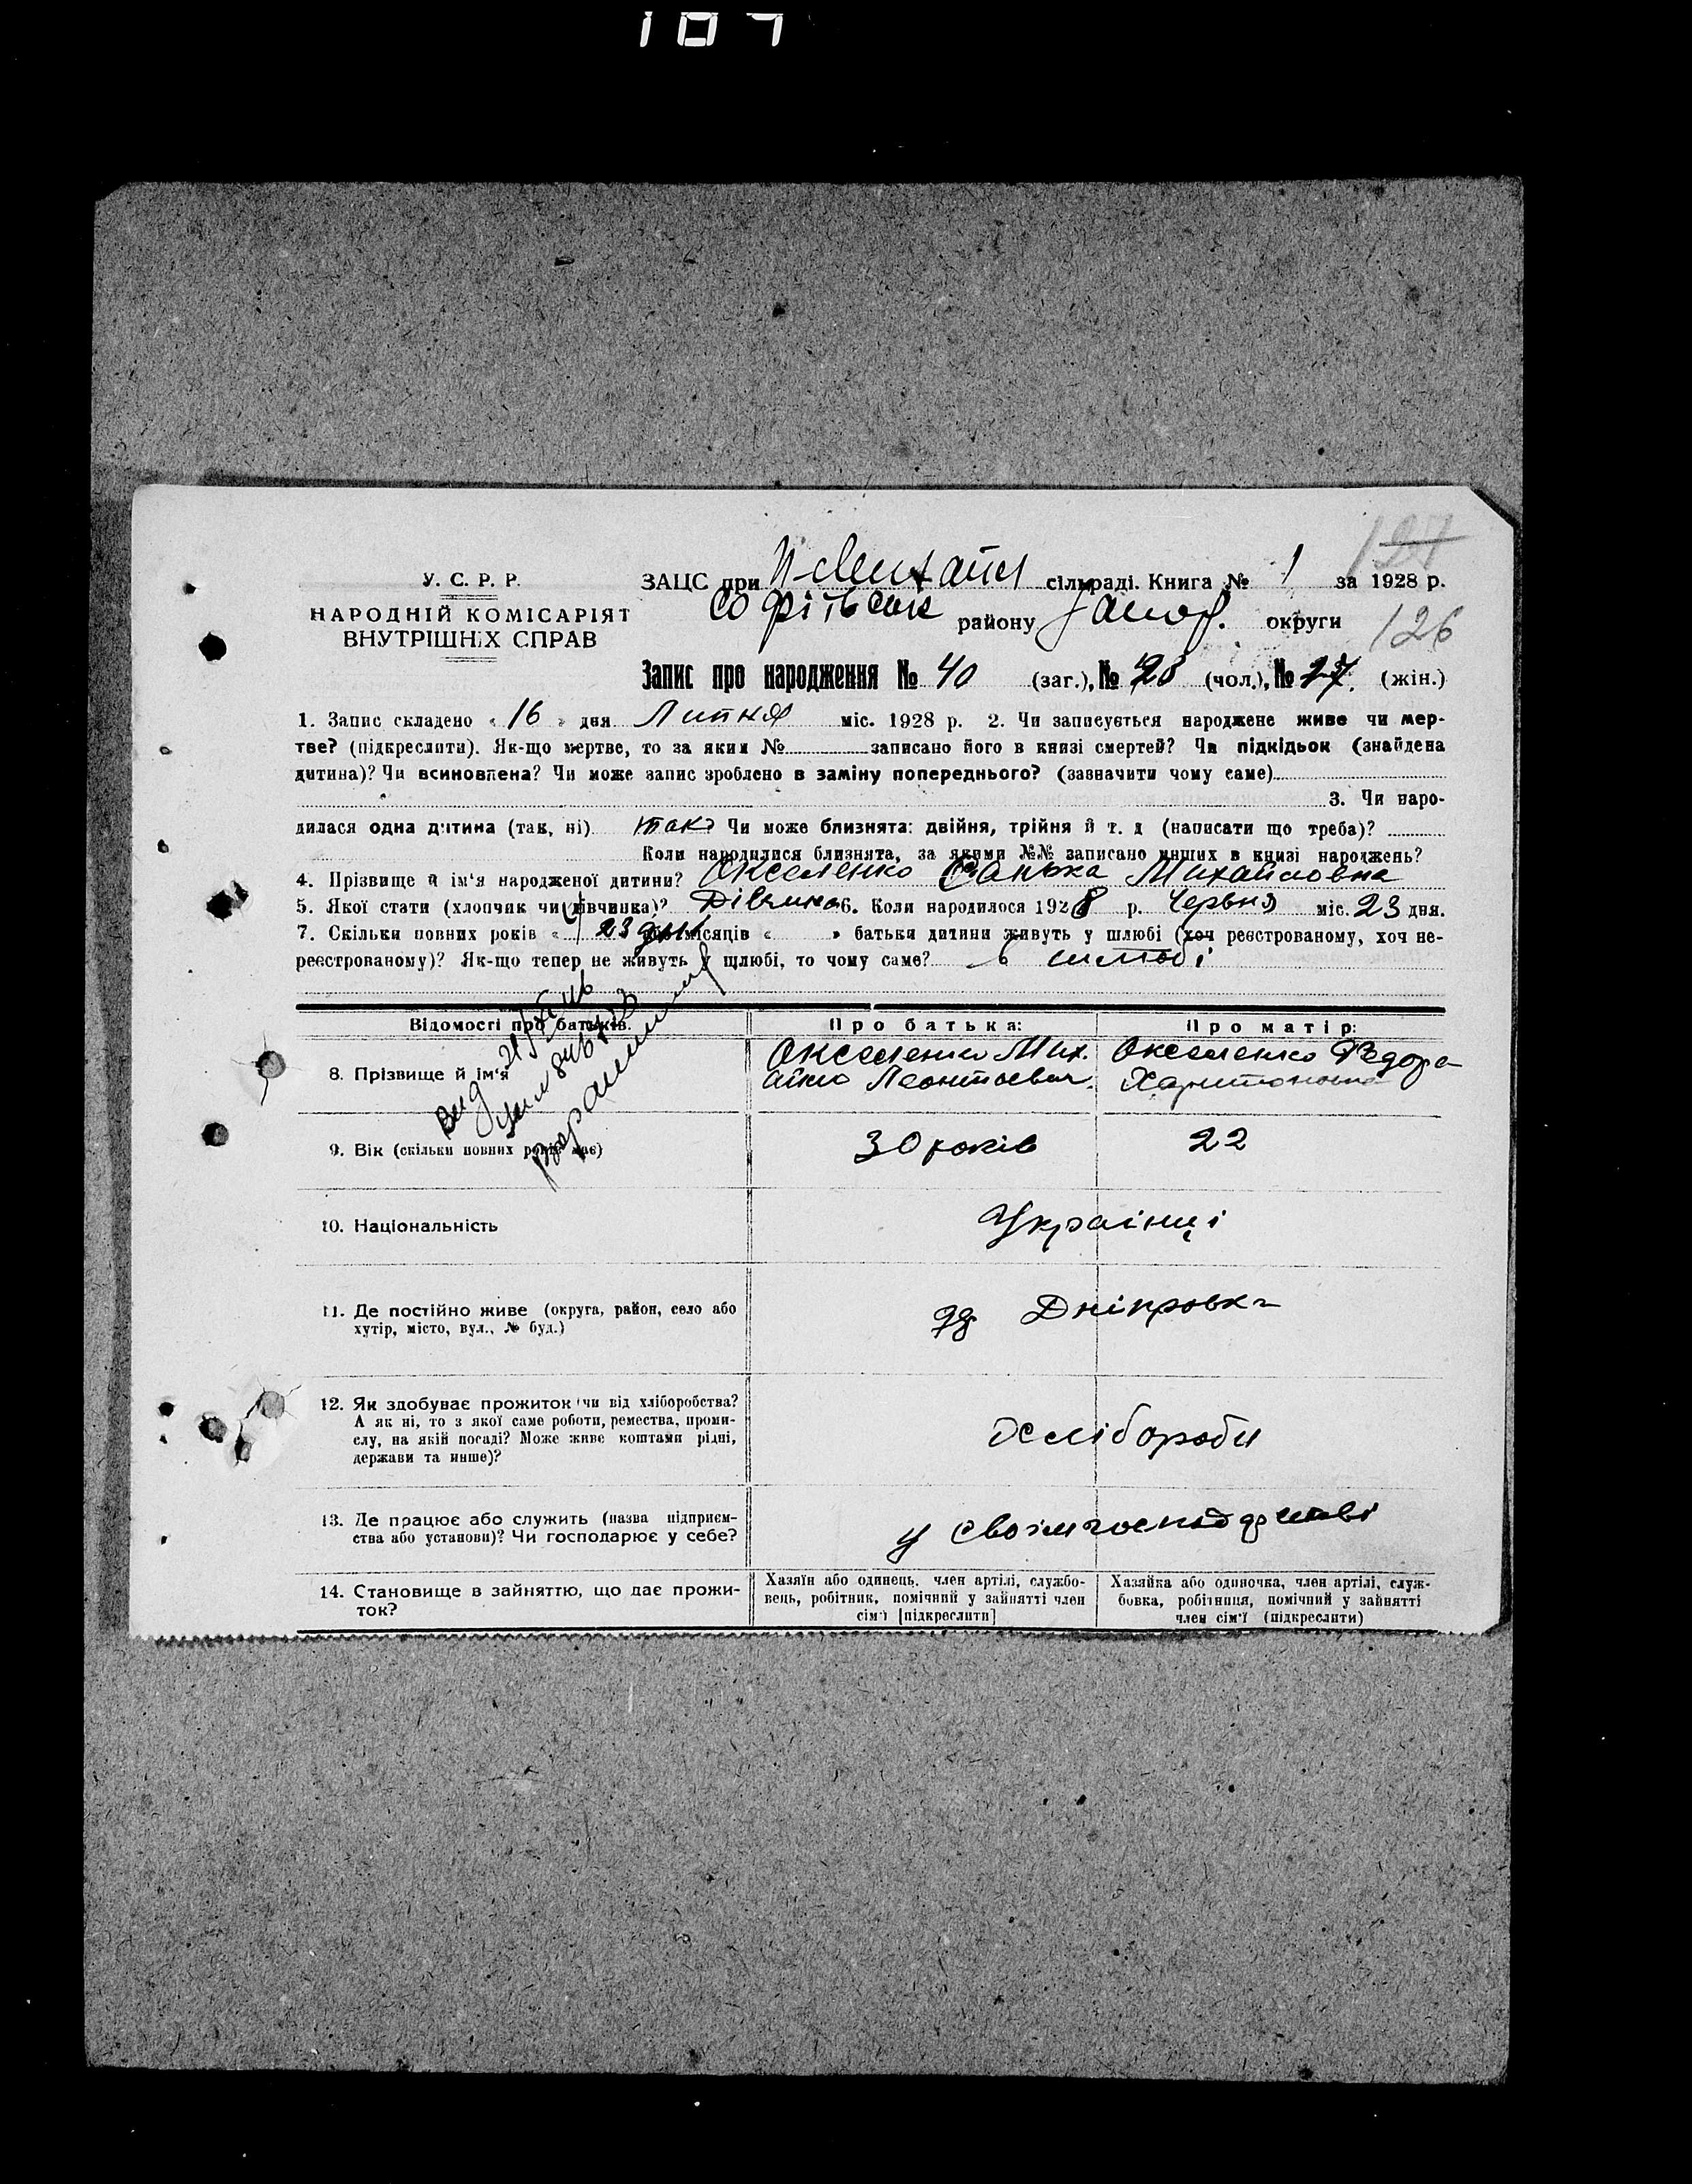 107
127
У. С. Р. Р.
НАРОДНІЙ КОМІСАРІЯТ
ВНУТРІШНІХ СПРАВ
ЗАЦС при сільраді. Книга № 1 за 1928 р.
Софіївськ району Запор. округи
126
Запис про народження № 40 (заг.), № 28 (чол.), № 27. (жін.)
1. Запис складено « 16 » дня Липня міс. 1928 р. 2. Чи записується народжене живе чи мер-
тве? (підкреслити). Як-що мертве, то за яким № записано його в книзі смертей? Чи підкідьок (знайдена
дитина)? Чи всиновлена? Чи може запис зроблено в заміну попереднього? (зазначити чому саме)
3. Чи наро-
дилася одна дитина (так, ні) так Чи може близнята: двійня, трійня й т. д (написати що треба)?
Коли народилися близнята, за якими №№ записано инших в книзі народжень?
4. Прізвище й ім'я народженої дитини? Оксененко Санька Михайловна
5. Якої стати (хлопчик чи дівчинка)? Дівчина 6. Коли народилося 1928 р. Червня міс. 23 дня.
7. Скільки повних років « 23 дня або місяців « » батьки дитини живуть у шлюбі (хоч реєстрованому, хоч не-
реєстрованому)? Як-що тепер не живуть у шлюбі, то чому саме? в шлюбі
Відомості про батьків.
Про батька:
Про матір:
8. Прізвище й ім'я
Оксененко Мих.
айло Леонтьевич.
Оксененко Федора
Харитоновна
9. Вік (скільки повних років має)
30 років
22
10. Національність
Українці
11. Де постійно живе (округа, район, село або
хутір, місто, вул., № буд.)
Дніпровка
12. Як здобуває прожиток (чи від хліборобства?
А як ні, то з якої саме роботи, ремества, проми-
слу, на якій посаді? Може живе коштами рідні,
держави та инше)?
Хлібороби
13. Де працює або служить (назва підприєм-
ства або установи)? Чи господарює у себе?
у своім господарстві
14. Становище в зайняттю, що дає прожи-
ток?
Хазяїн або одинець, член артілі, службо-
вець, робітник, помічний у зайнятті член
сім'ї [підкреслити]
Хазяйка або одиночка, член артілі, служ-
бовка, робітниця, помічний у зайнятті
член сім'ї (підкреслити)